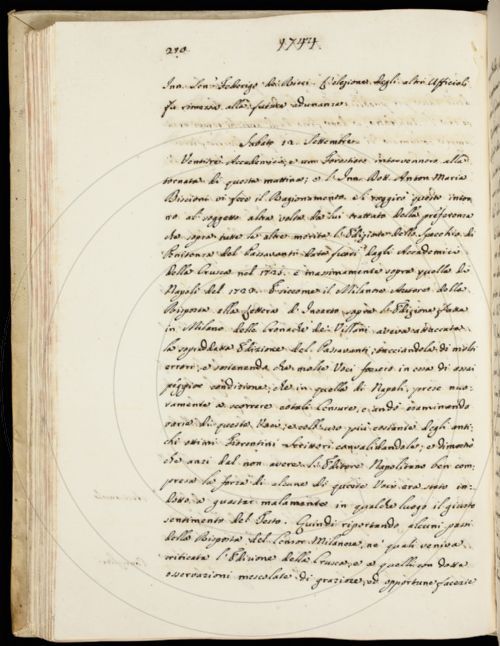 210. 1744.
Inn. Sen. Federigo de Ricci. L'elezione degli altri Uffiziali
fu rimessa alla futura adunanza.
Sabato 12. Settembre
Ventitrè Accademici, e un Forestiero intervennero alla
tornata di questa mattina; e l'Inn. Dott. Anton Maria
Biscioni vi fece il Ragionamento. Si raggirò questo intor-
no al soggetto altra volta da lui trattato della preferenza
che sopra tutte le altre merita l'Edizione dello Specchio di
Penitenza del Passavanti data fuori dagli Accademici
della Crusca nel 1725. e massimamente sopra quella di
Napoli del 1723. E siccome il Milanese Autore della
Risposta alla Lettera d'Incerto sopra l'Edizione fatta
in Milano delle Cronache de' Villani aveva attaccata
la sopraddetta Edizione del Passavanti, tacciandola di molti
errori, e sostenendo che molte Voci fossero in essa di assai
peggior condizione, che in quella di Napoli, prese nuo-
vamente a scorrere cotali Censure, e andò esaminando
varie di queste Voci, e coll'uso più costante degli anti-
chi ottimi Fiorentini Scrittori convalidandole, e dimostrò
che anzi dal non avere l'Editore Napolitano ben com-
presa la forza di alcune di queste Voci era stato in-
dotto a guastar malamente in qualche luogo il giusto
sentimento del Testo. Quindi riportando alcuni passi
della Risposta del Censor Milanese, ne' quali veniva
criticata l'Edizione della Crusca, e a quelli con dotte
osservazioni mescolate di graziose, ed opportune facezie